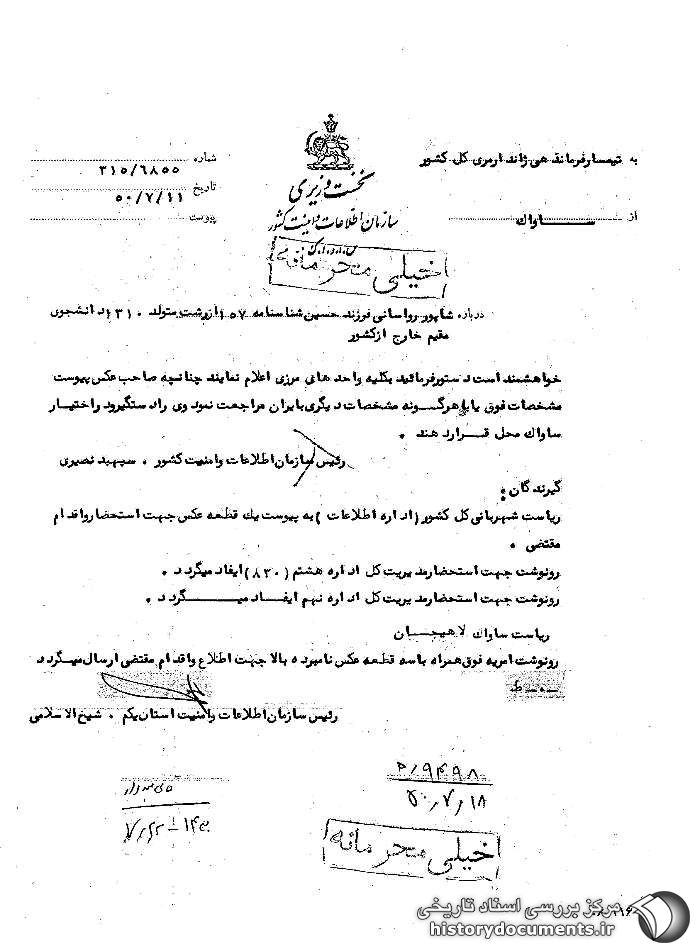 به تیمسار فرماندهی ژاندارمری کل کشور
از ساواک
نخست وزیری
سازمان اطلاعات و امنیت کشور
س.ا.و.ا.ک
شماره ۳۱۵/۶۸۵۵
تاریخ ۵۰/۷/۱۱
پیوست
خیلی محرمانه
درباره شاپور رواسانی فرزند حسین شناسنامه ۱۵۷ از رشت متولد ۱۳۱۰ دانشجوی
مقیم خارج از کشور
خواهشمند است دستور فرمائید بکلیه واحدهای مرزی اعلام نمایند چنانچه صاحب عکس پیوست
مشخصات فوق یا با هرگونه مشخصات دیگری بایران مراجعت نمود وی را دستگیر و در اختیار
ساواک محل قرار دهند .
رئیس سازمان اطلاعات و امنیت کشور . سپهبد نصیری
گیرندگان :
ریاست شهربانی کل کشور (اداره اطلاعات ) به پیوست یک قطعه عکس جهت استحضار و اقدام
مقتضی .
رونوشت جهت استحضار مدیریت کل اداره هشتم (۸۳۰) ایفاد میگردد .
رونوشت جهت استحضار مدیریت کل اداره نهم ایفاد میگردد .
ریاست ساواک لاهیجان
رونوشت امریه فوق همراه با سه قطعه عکس نامبرده بالا جهت اطلاع و اقدام مقتضی ارسال میگردد
رئیس سازمان اطلاعات و امنیت استان یکم . شیخ الاسلامی
۵۰/۷/۱۸
خیلی محرمانه
مرکز بررسی اسناد تاریخی
historydocuments.ir